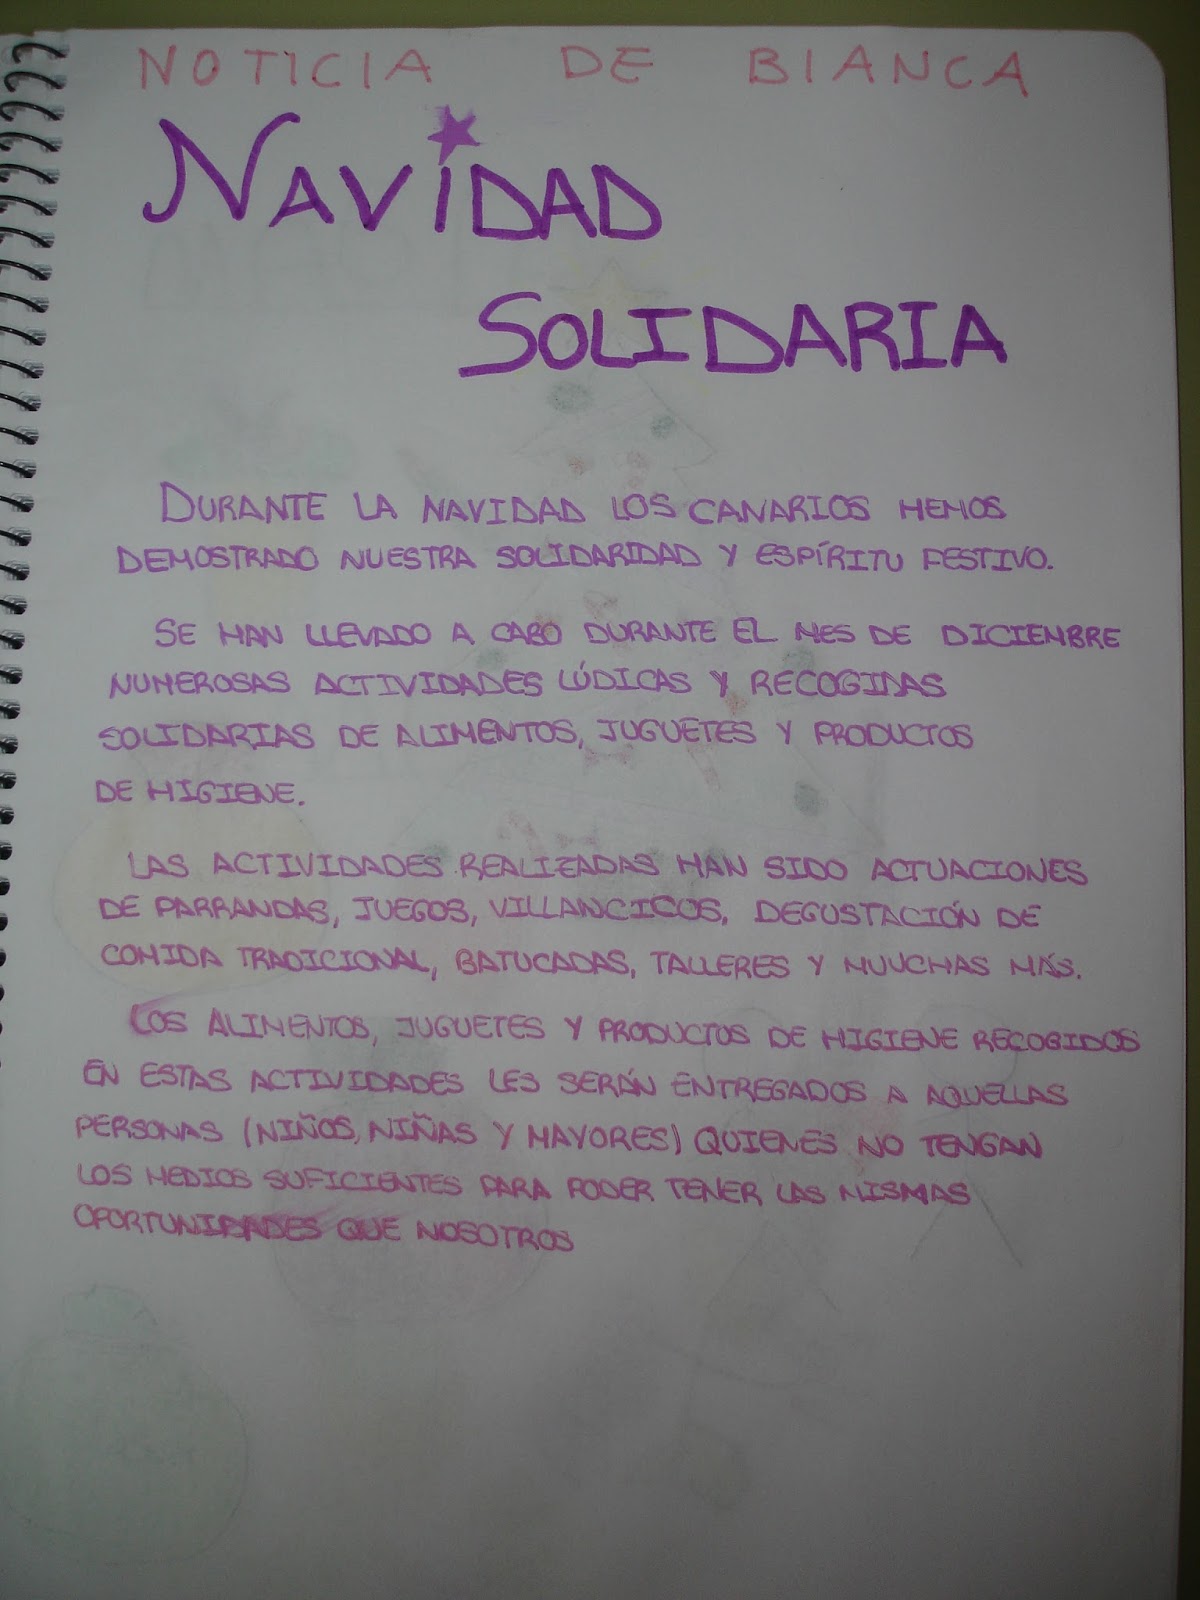 NOTICIA DE BIANCA
NAVIDAD
SOLIDARIA
DURANTE LA NAVIDAD LOS CANARIOS HEMOS
DEMOSTRADO NUESTRA SOLIDARIDAD Y ESPÍRITU FESTIVO.
SE HAN LLEVADO A CABO DURANTE EL MES DE DICIEMBRE
NUMEROSAS ACTIVIDADES LÚDICAS Y RECOGIDAS
SOLIDARIAS DE ALIMENTOS, JUGUETES Y PRODUCTOS
DE HIGIENE.
LAS ACTIVIDADES REALIZADAS HAN SIDO ACTUACIONES
DE PARRANDAS, JUEGOS, VILLANCICOS, DEGUSTACIÓN DE
COMIDA TRADICIONAL, BATUCADAS, TALLERES Y MUUCHAS MÁS.
LOS ALIMENTOS, JUGUETES Y PRODUCTOS DE HIGIENE RECOGIDOS
EN ESTAS ACTIVIDADES LES SERÁN ENTREGADOS A AQUELLAS
PERSONAS (NIÑOS, NIÑAS Y MAYORES) QUIENES NO TENGAN
LOS MEDIOS SUFICIENTES PARA PODER TENER LAS MISMAS
OPORTUNIDADES QUE NOSOTROS